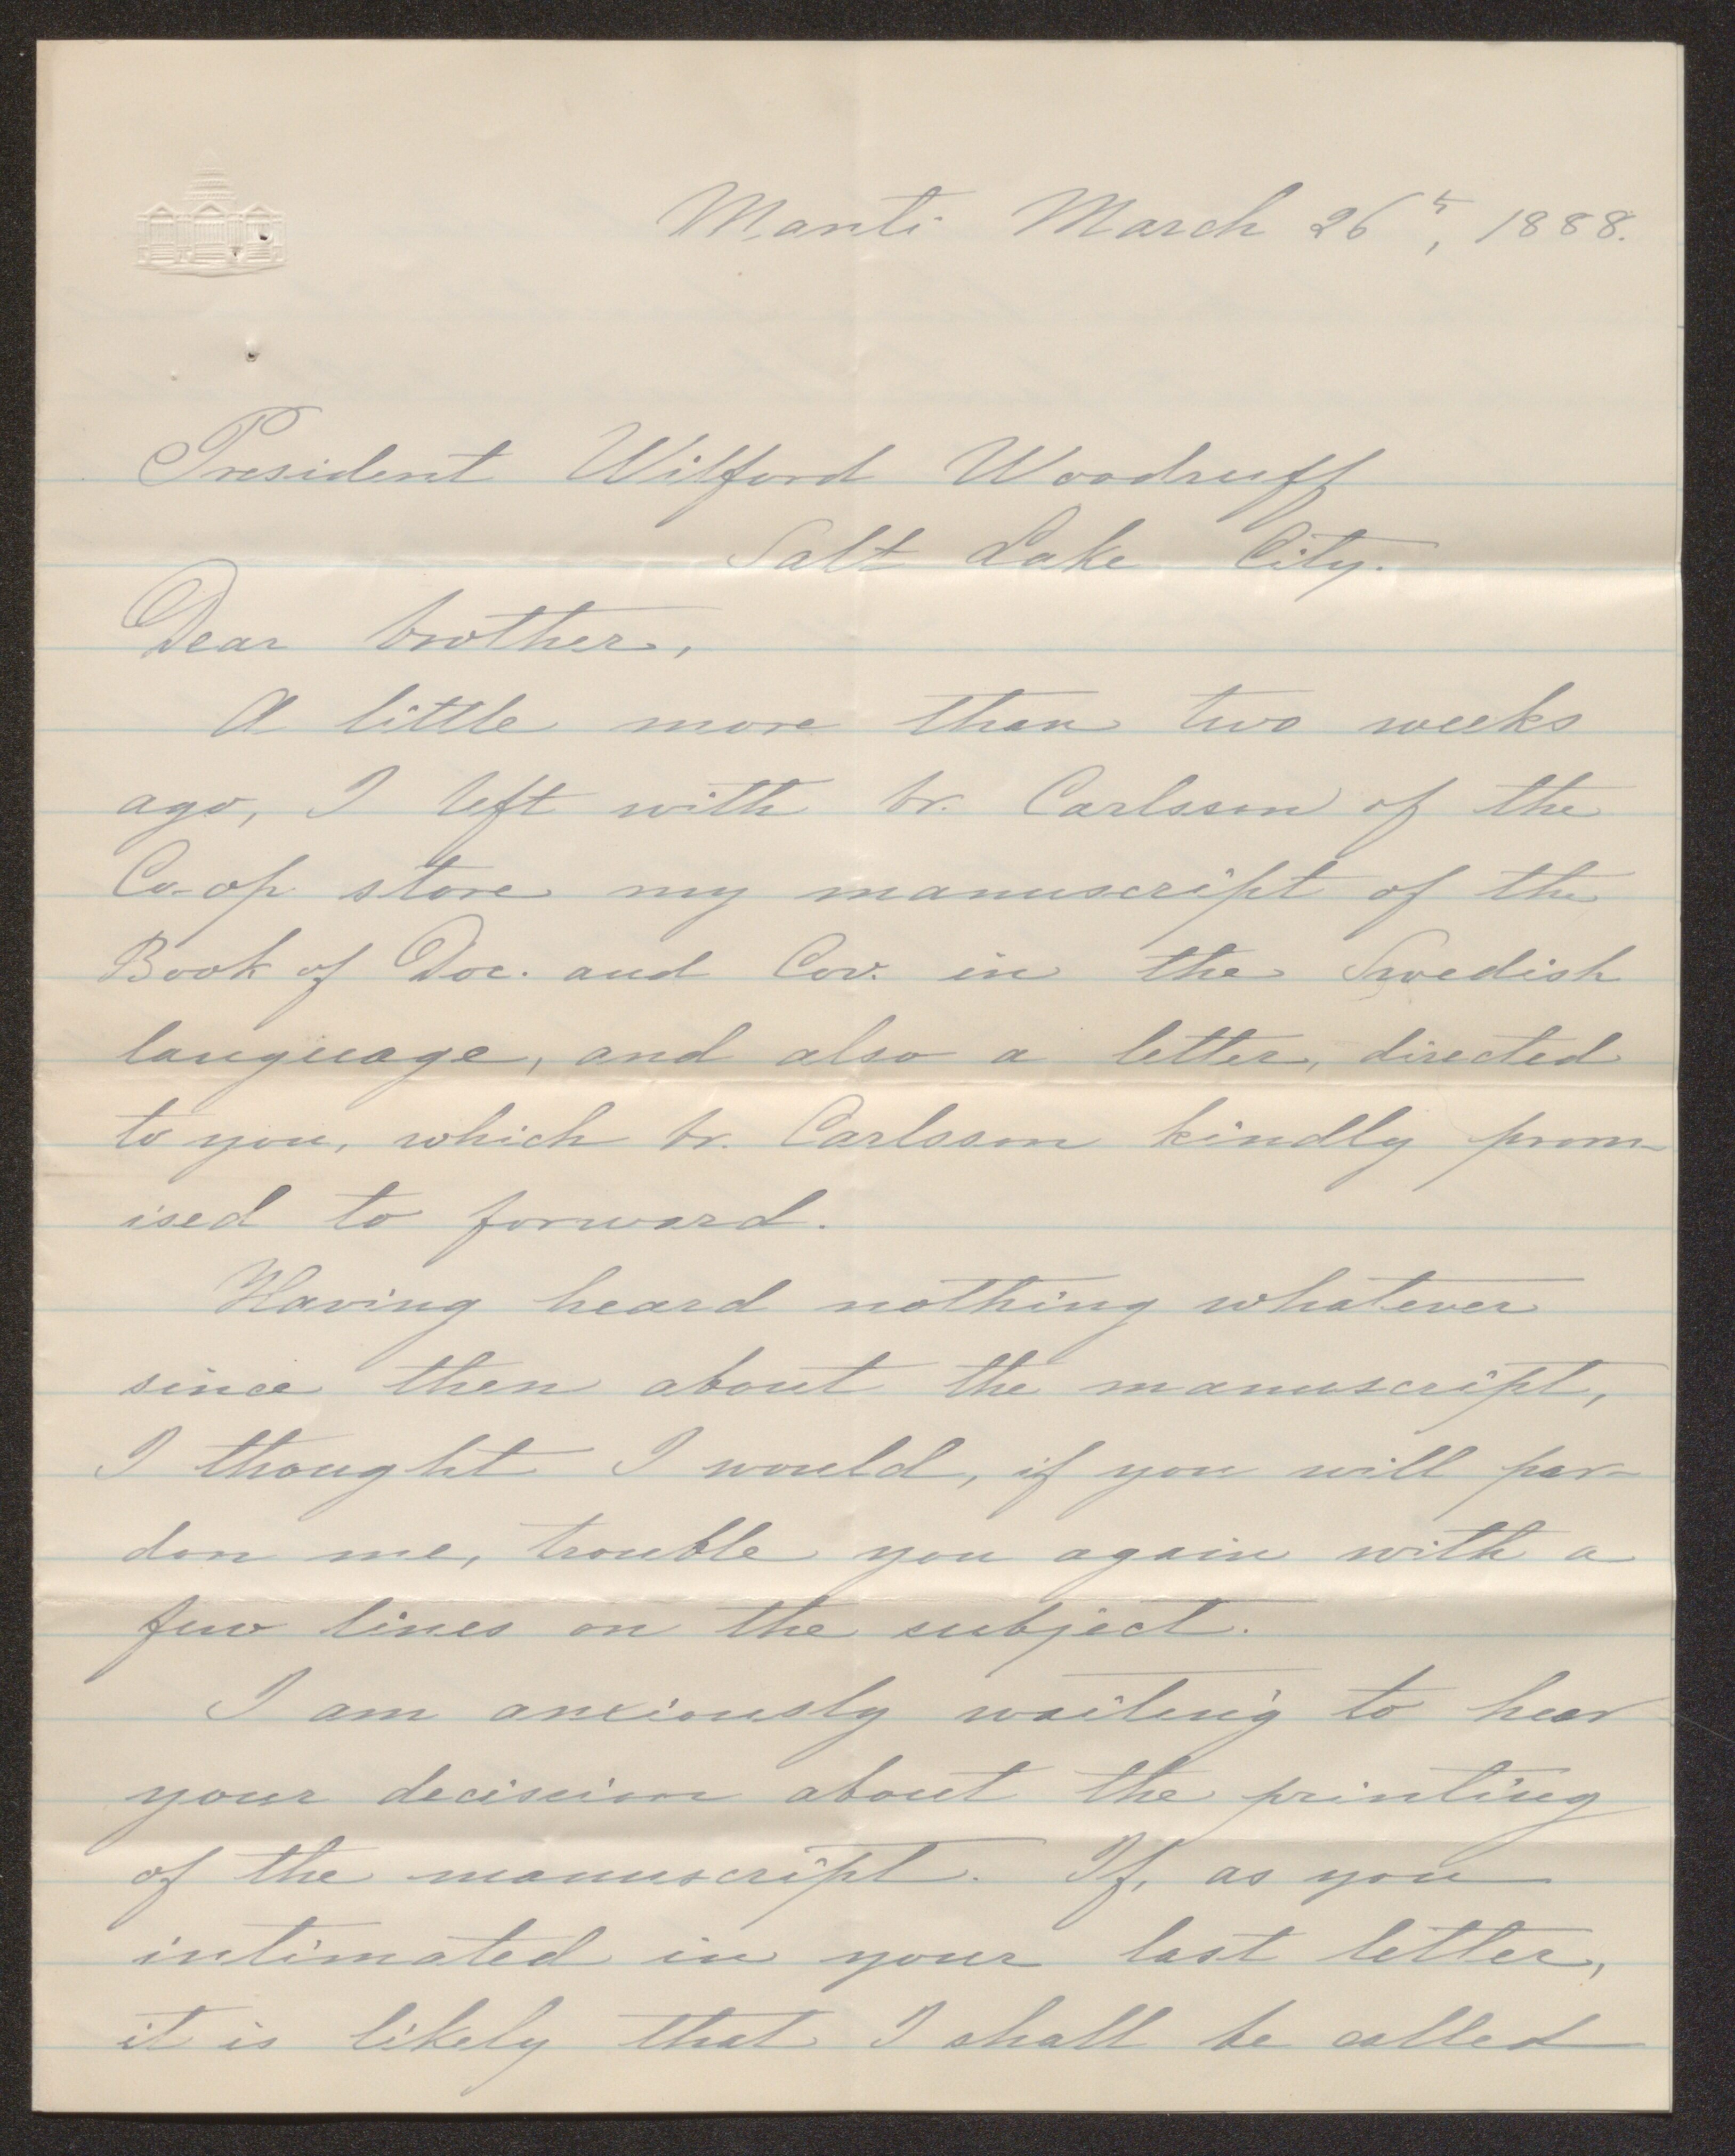 Manti March 26th, 1888.
President Wilford Woodruff
Salt Lake City.
Dear brother,
A little more than two weeks
ago, I left with br. Carlsson of the
Co-op store my manuscript of the
Book of Doc. and Cov. in the Swedish
language, and also a letter, directed
to you, which br. Carlsson kindly prom-
ised to forward.
Having heard nothing whatever
since then about the manuscript,
I thought I would, if you will par-
don me, trouble you again with a
few lines on the subject.
I am anxiously waiting to hear
your decision about the printing
of the manuscript. If, as you
intimated in your last letter,
it is likely that I shall be called